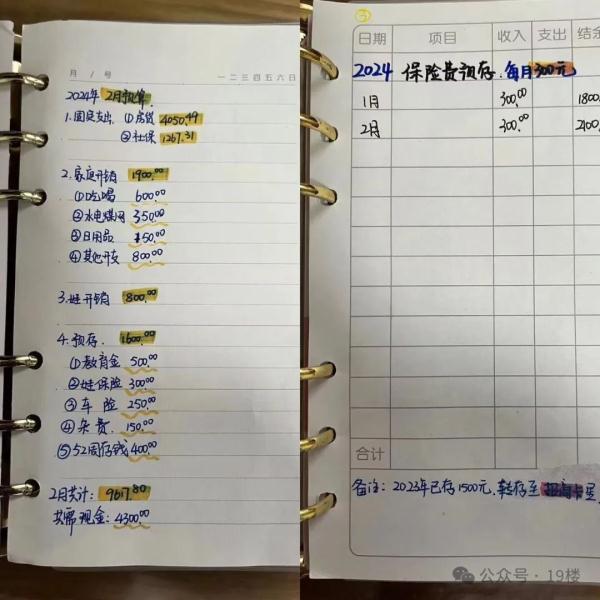 月 / 号 一二三四五六日
2024年 2月预算
1.固定支出 ①房贷 4050.49
②社保 1267.31
2.家庭开销 1900.00
①吃喝 600.00
②水电煤网 350.00
③日用品 150.00
④其他开支 800.00
3.娃开销 800.00
4.预存 1600.00
①教育金 500.00
②娃保险 300.00
③车险 250.00
④杂费 150.00
⑤52周存钱 400.00
2月共计: 9617.80
共需现金: 4300.00
③
日期 项目 收入 支出 结余
2024 保险费预存.每月300元
1月 300.00 1800
2月 300.00 2100
合计
备注: 2023年已存1500元,转存至招商卡里
公众号·19楼